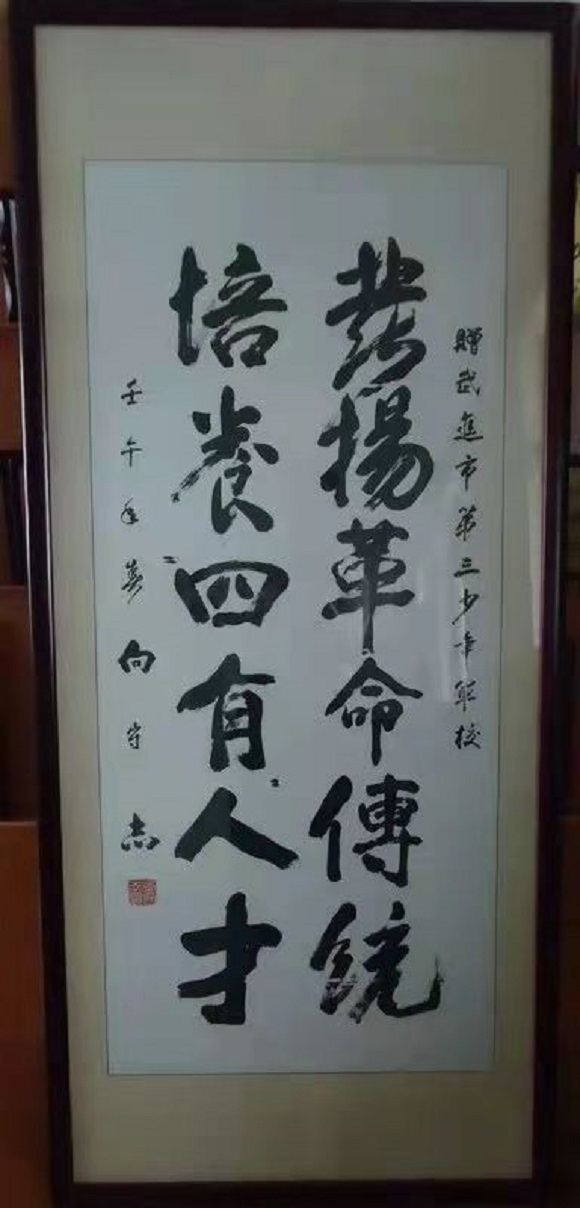 贈武進市第三少年軍校
發揚革命傳统
培养“四有”人才
壬午年春 向守志